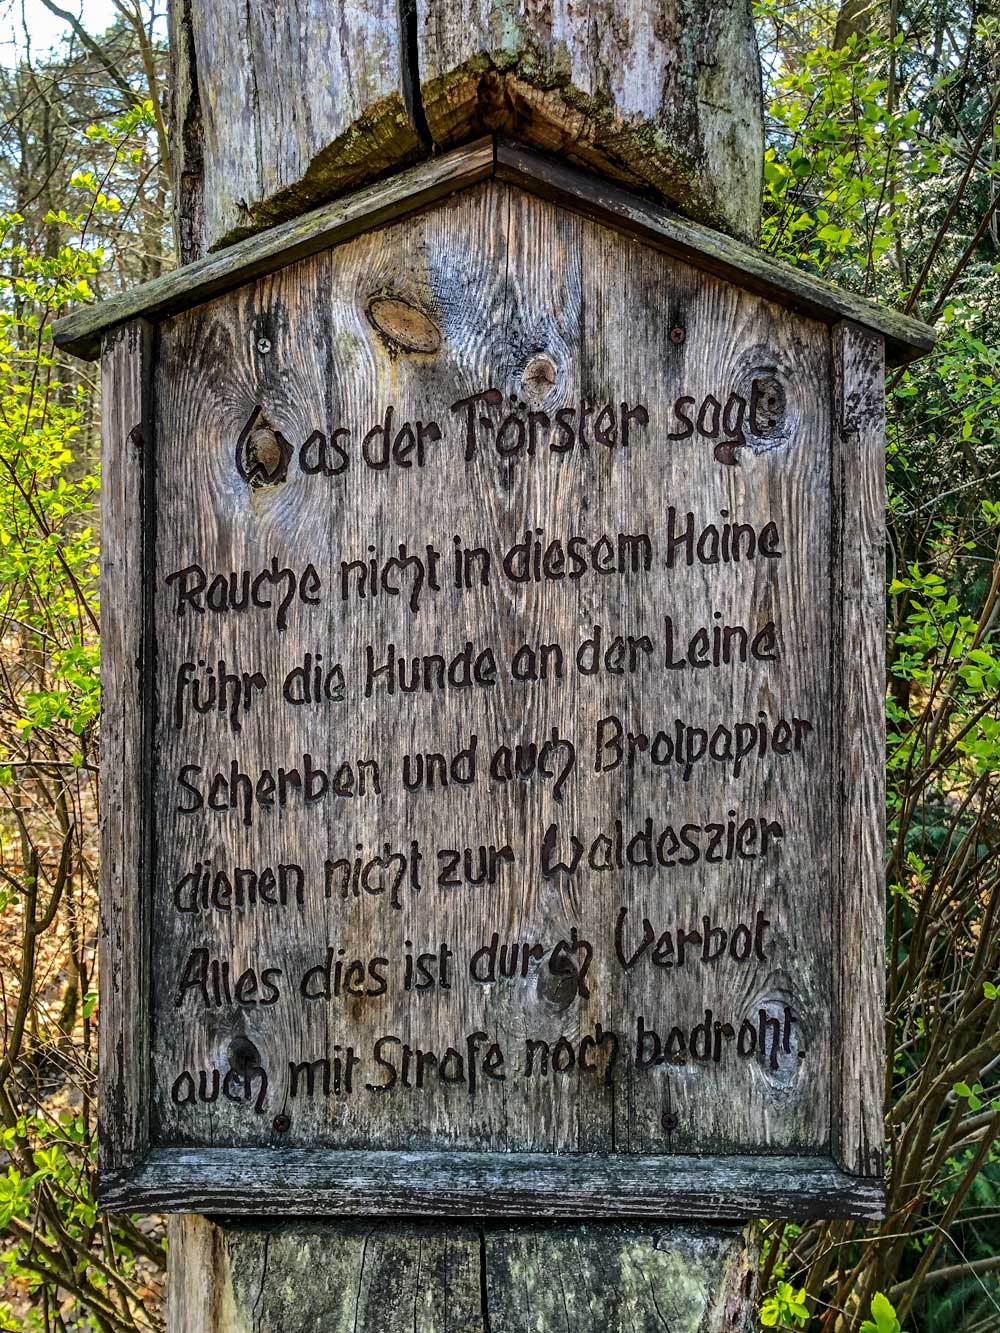 Was der Förster sagt:
Rauche nicht in diesem Haine
führ die Hunde an der Leine
Scherben und auch Brotpapier
dienen nicht zur Waldeszier
Alles dies ist durch Verbot
auch mit Strafe noch bedroht.